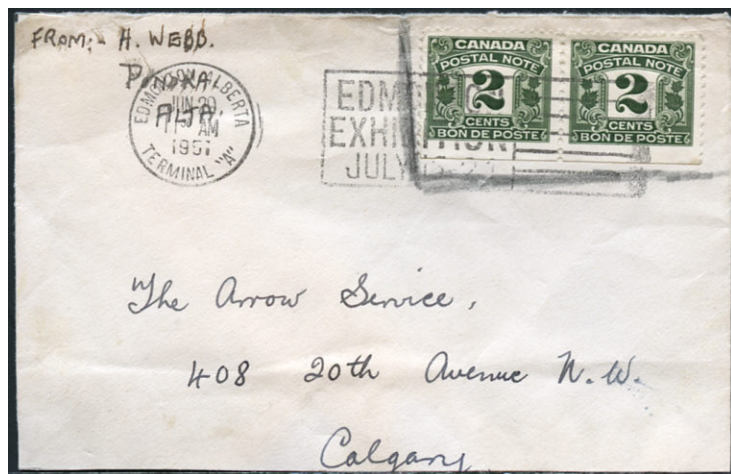 FROM:- H. WEBB.
PONOKA
ALTA.
EDMONTON ALBERTA
JUN 20
11 AM
1951
TERMINAL "A"
EDMONTON
EXHIBITION
JULY
CANADA
POSTAL NOTE
2
CENTS
BON DE POSTE
CANADA
POSTAL NOTE
2
CENTS
BON DE POSTE
The Arrow Service,
408 20th Avenue N.W.
Calgary